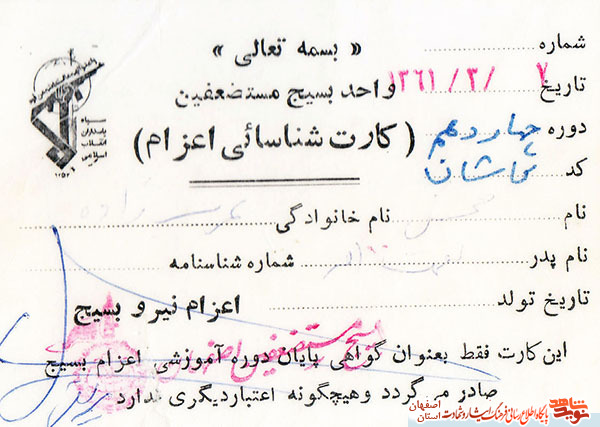 « بسمه تعالی »
شماره
تاریخ ۷ /۳/ ۱۳۶۱
واحد بسیج مستضعفین
دوره چهاردهم
(کارت شناسائی اعزام)
کد کاشان
سپاه پاسداران انقلاب اسلامی
نام محسن نام خانوادگی
نام پدر شماره شناسنامه
تاریخ تولد
اعزام نیرو بسیج
بسیج مستضعفین
این کارت فقط بعنوان گواهی پایان دوره آموزشی اعزام بسیج
صادر می گردد وهیچگونه اعتباردیگری ندارد
نوید شاهد
پایگاه اطلاع رسانی فرهنگ ایثار و شهادت
استان اصفهان